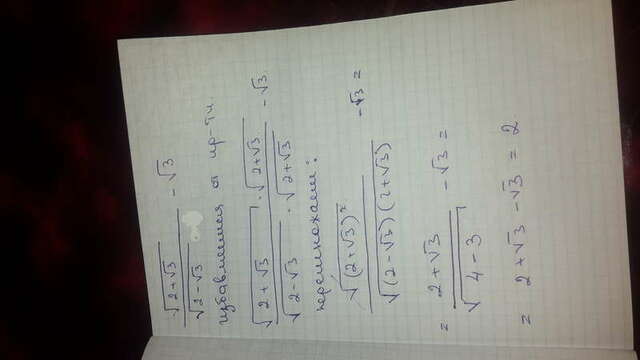 √(2+√3) / √(2-√3) - √3
избавляемся от ир-ти.
√(2+√3) · √(2+√3) / √(2-√3) · √(2+√3) - √3
перемножаем:
√(2+√3)² / √(2-√3)(2+√3) - √3 =
= 2+√3 / √4-3 - √3 =
= 2+√3 - √3 = 2